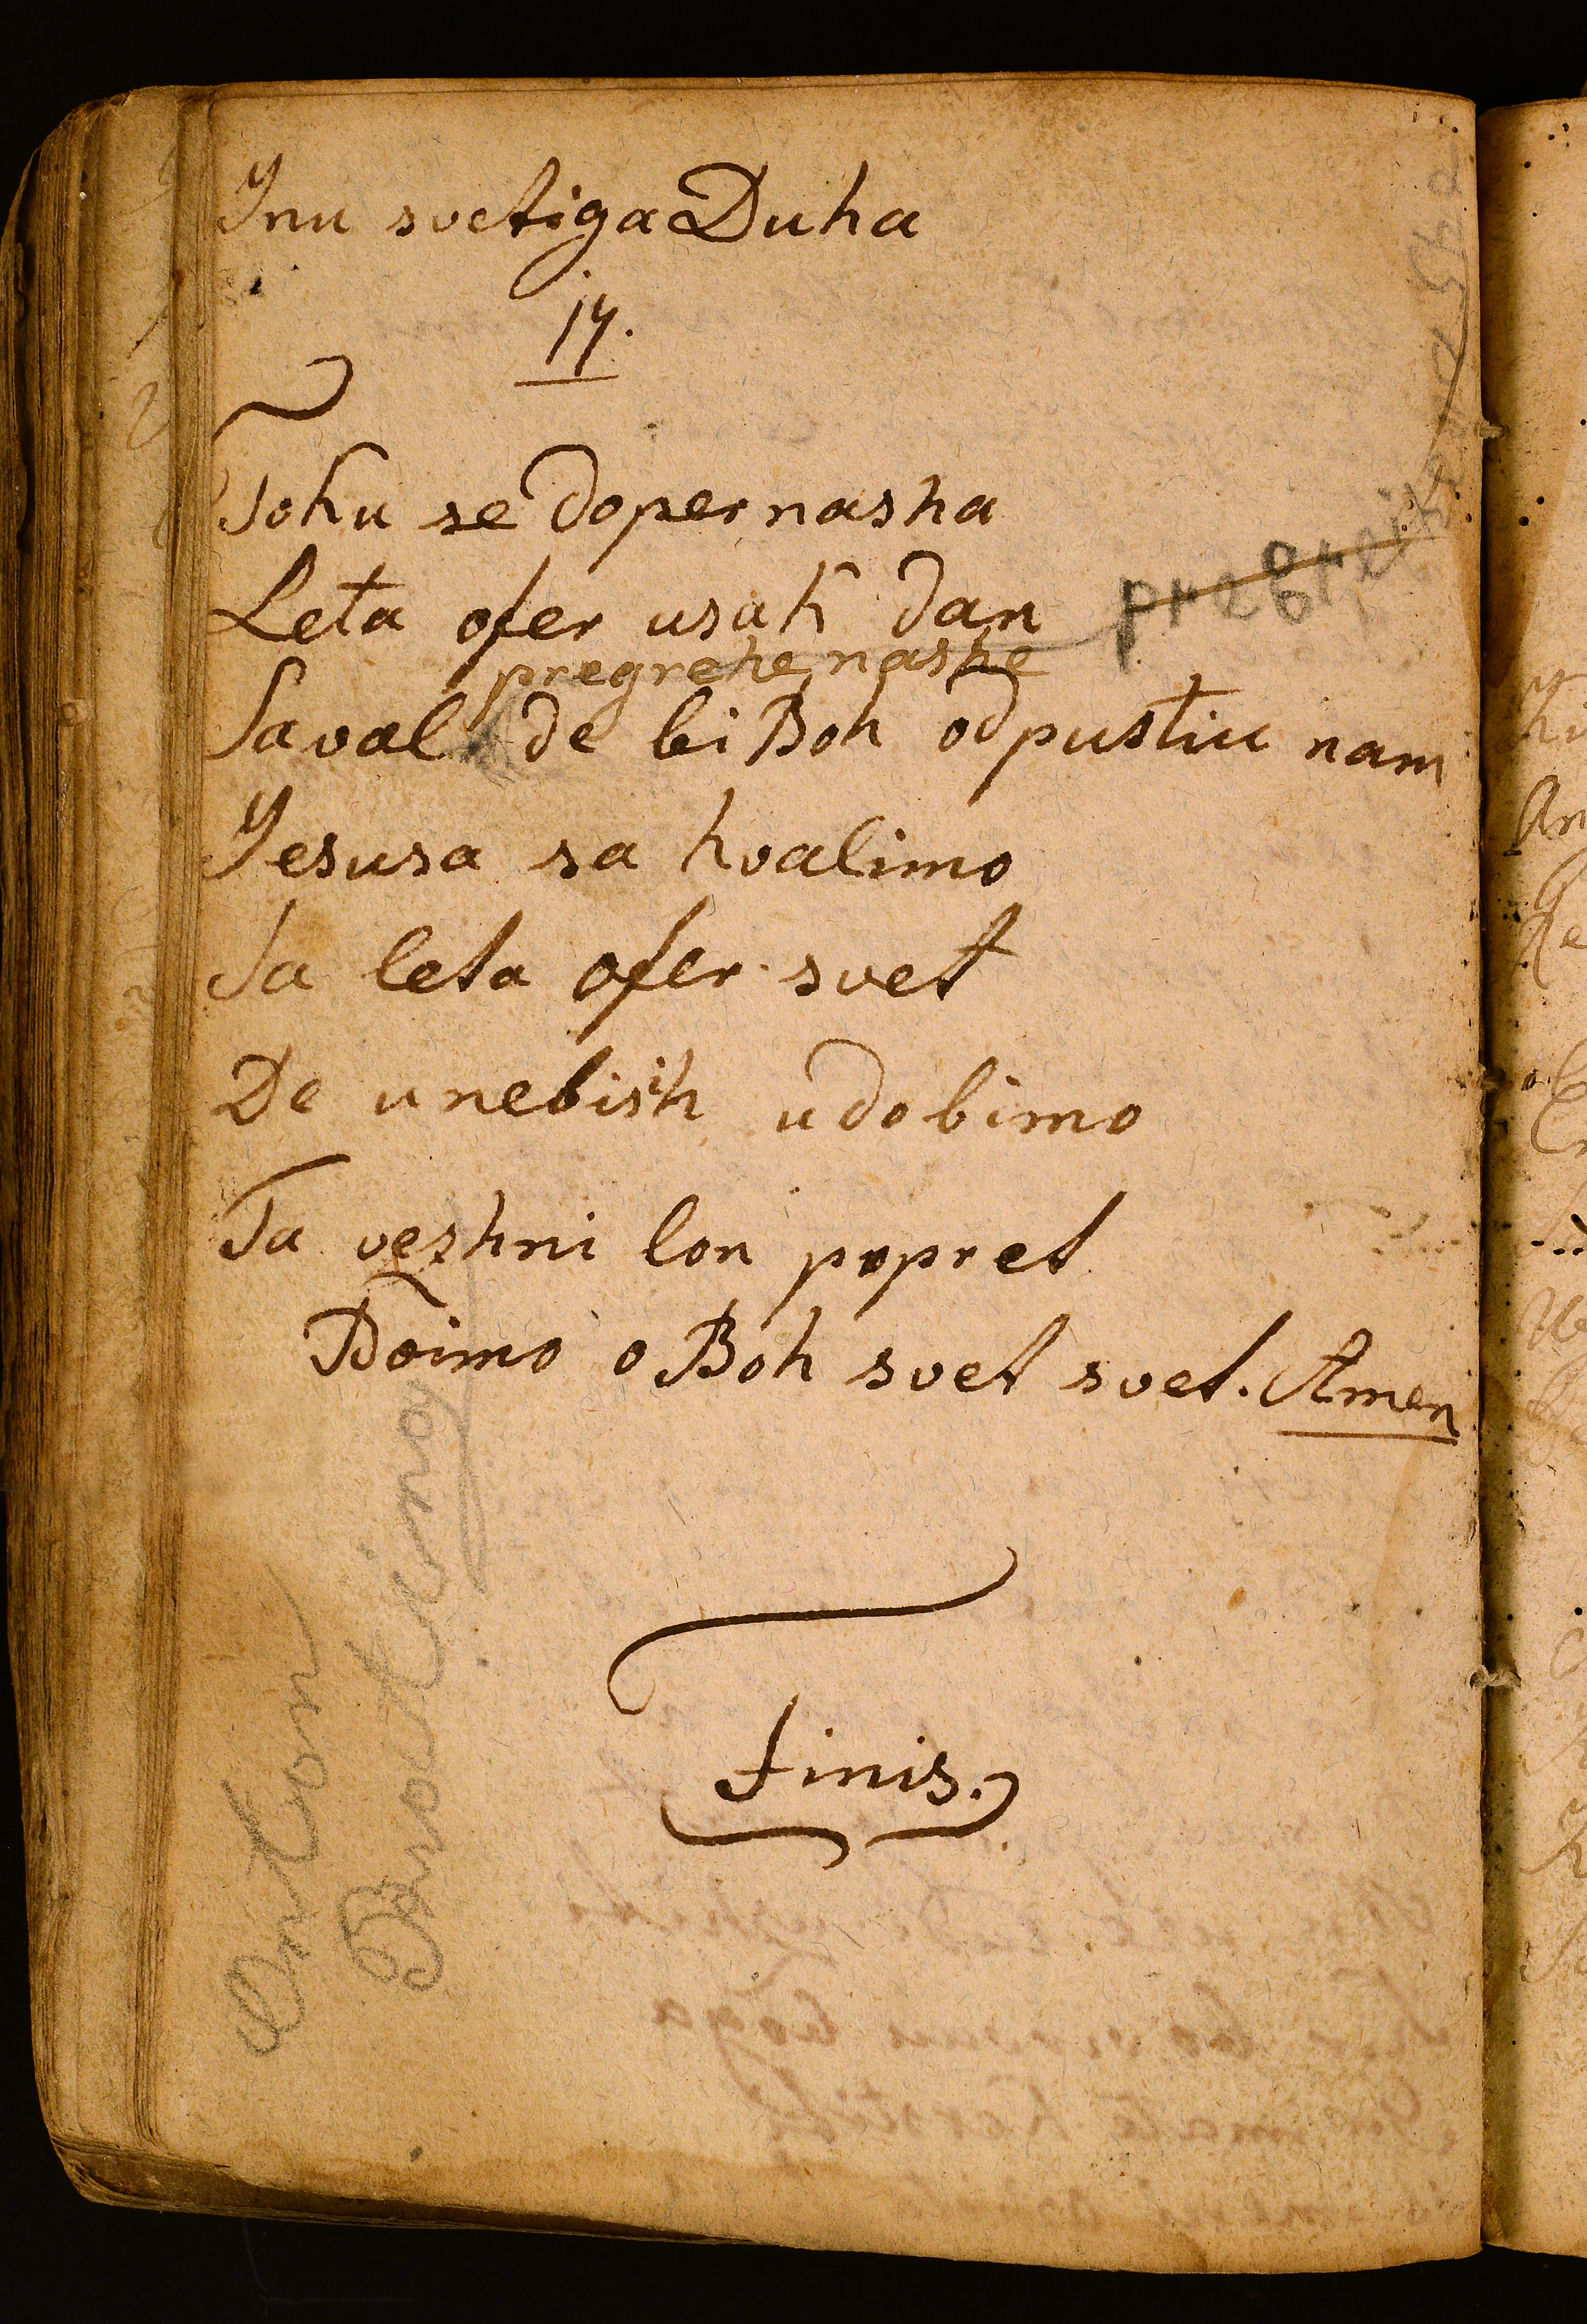 Inu svetiga Duha
17.
Toku se doper nasha
Leta ofer usak dan
pregrehe nashe
Saval de bi Boh odpustiu nam
Jesusa sa hvalimo
Sa leta ofer svet
De unebisih udobimo
Ta vezhni lon popret
Boimo o Boh svet svet. Amen
Finis.
Anton